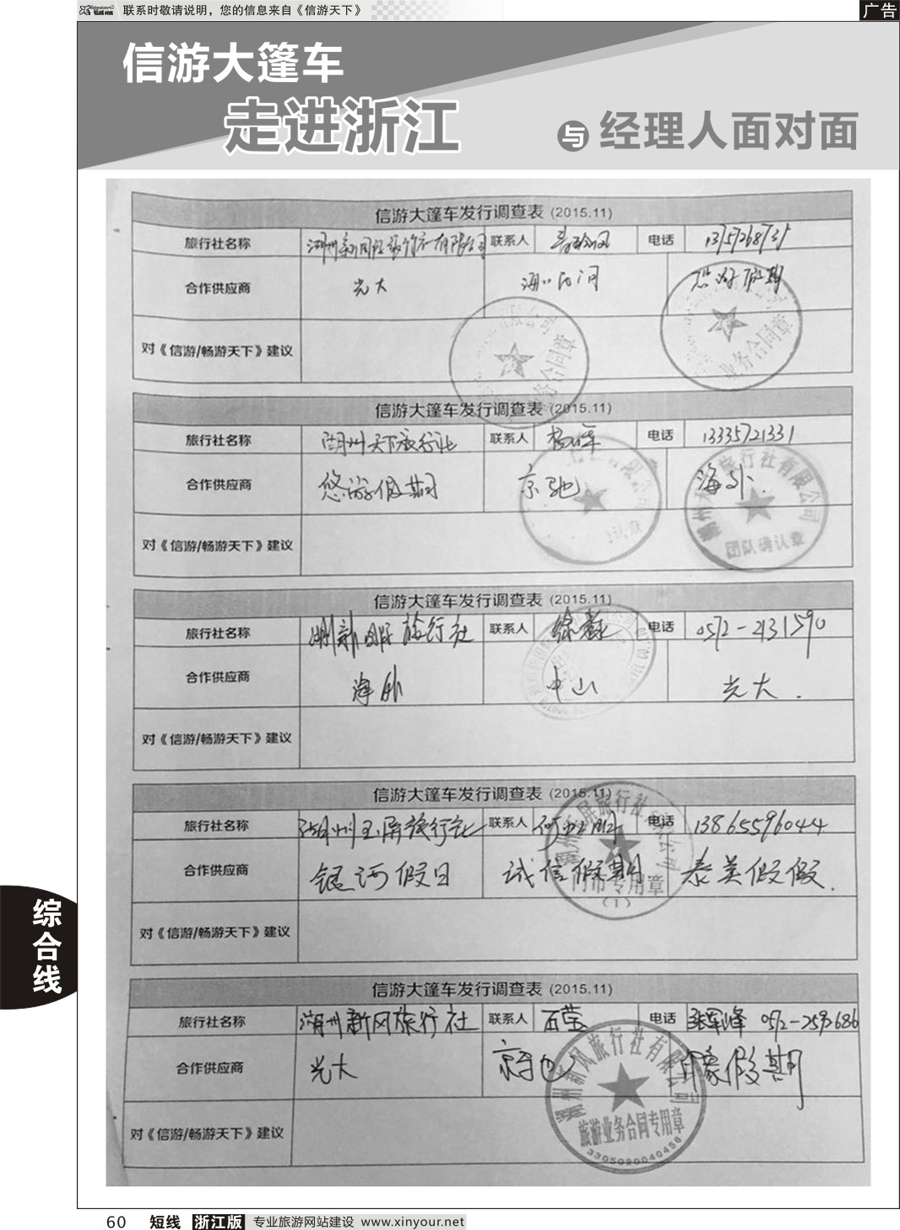 联系时敬请说明，您的信息来自《信游天下》
广告
信游大篷车
走进浙江
与 经理人面对面
信游大篷车发行调查表 (2015.11)
旅行社名称 联系人 电话
合作供应商 光大
对《信游/畅游天下》建议
业务合同章
信游大篷车发行调查表 (2015.11)
旅行社名称 湖州天下旅行社 联系人 电话 13335721331
合作供应商 悠游假期 京驰 海外
对《信游/畅游天下》建议
团队确认章
信游大篷车发行调查表 (2015.11)
旅行社名称 联系人 电话 0572-2131590
合作供应商 海外 中山 光大
对《信游/畅游天下》建议
信游大篷车发行调查表 (2015.11)
旅行社名称 湖州玉屏旅行社 联系人 电话 13865596044
合作供应商 银河假日 诚信假期 泰美假假
门市专用章
(1)
对《信游/畅游天下》建议
信游大篷车发行调查表 (2015.11)
旅行社名称 湖州新风旅行社 联系人 石莹 电话
合作供应商 光大 京驰 印象假期
湖州新风旅行社有限公司
旅游业务合同专用章
对《信游/畅游天下》建议
综合线
60 短线 浙江版 专业旅游网站建设 www.xinyour.net